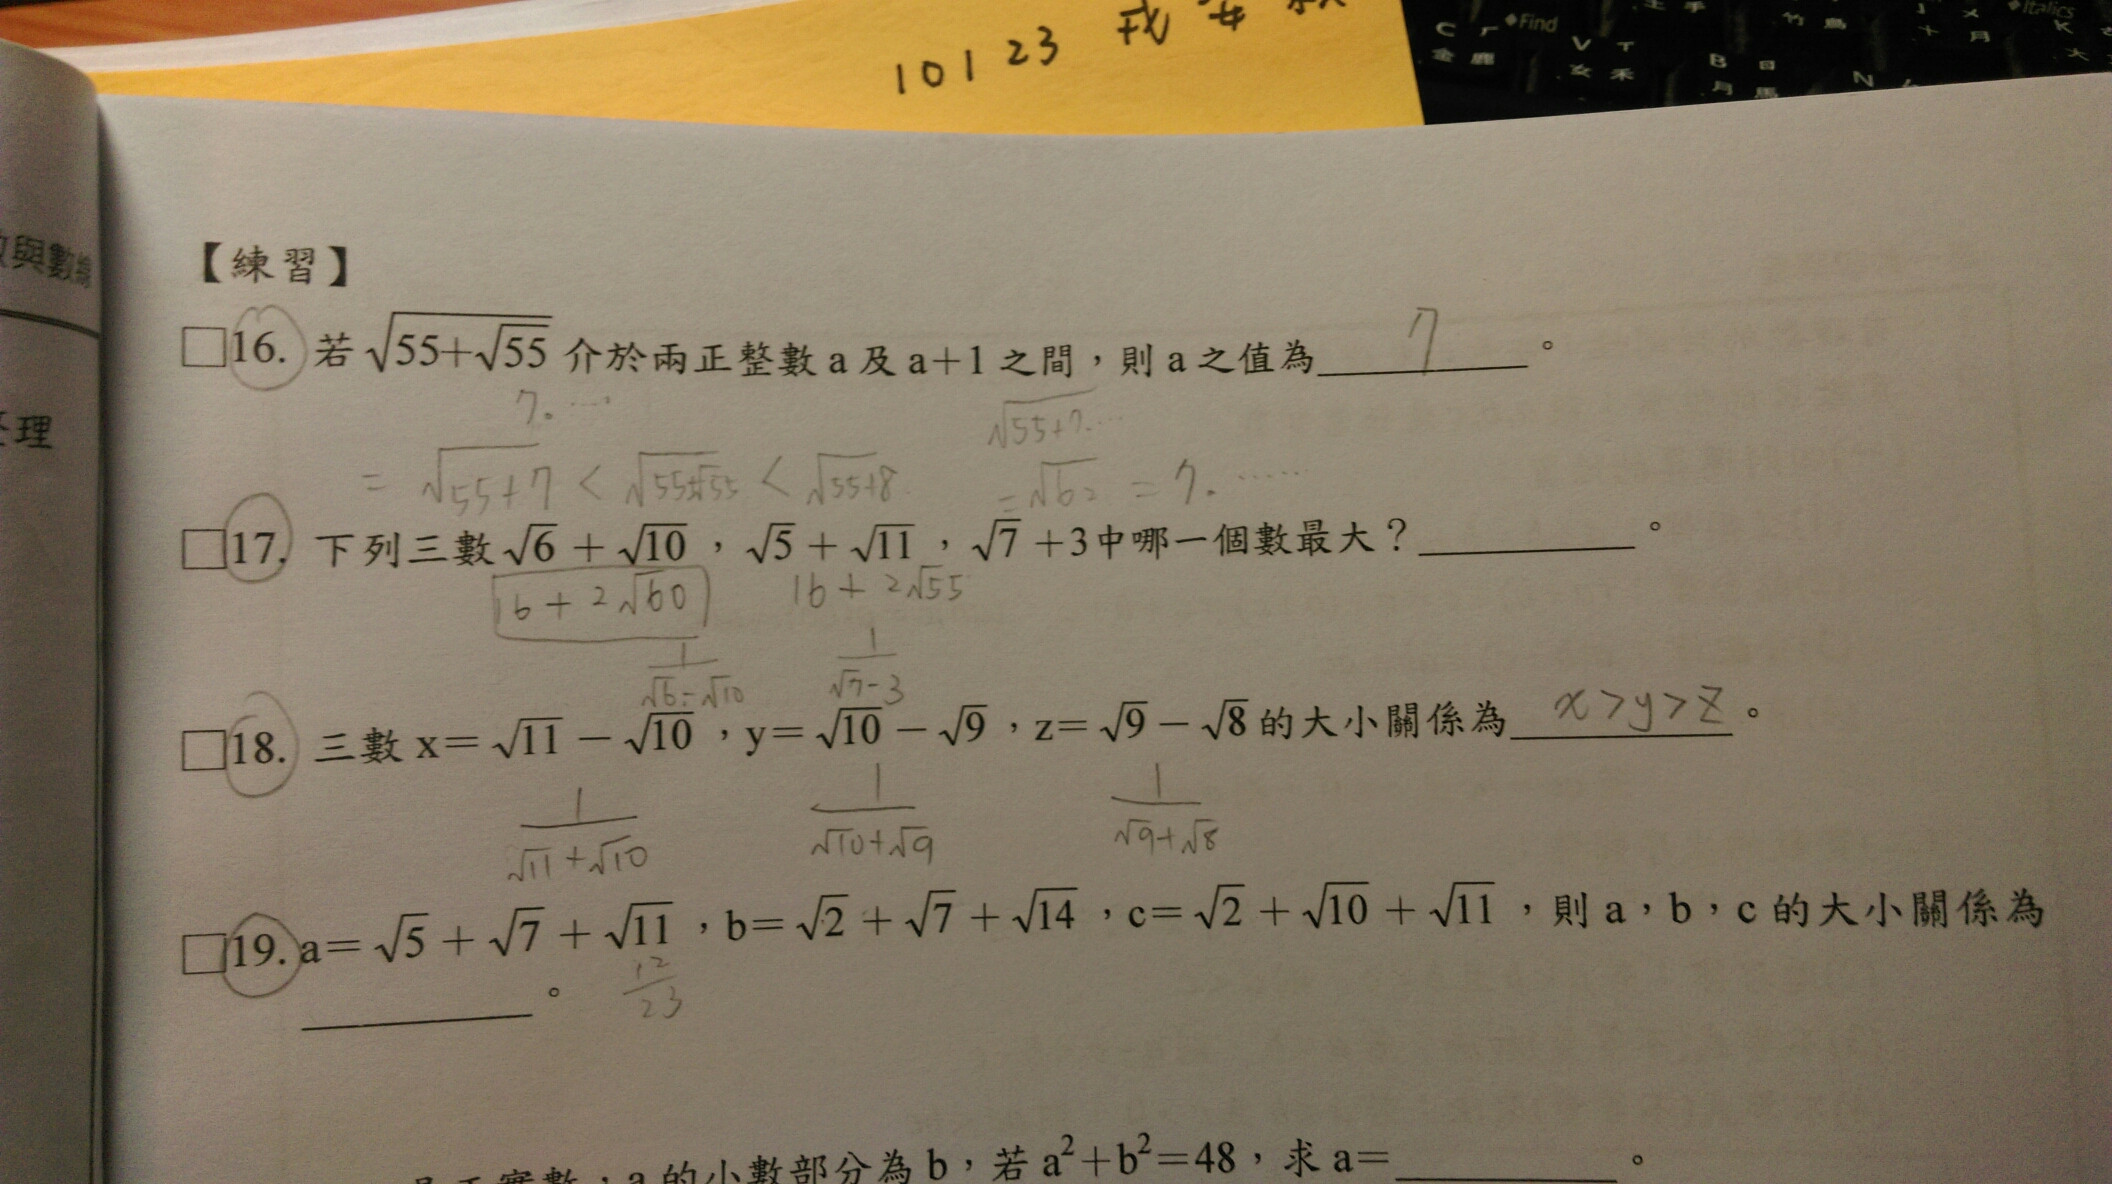 10123
Find
Italics
C
金
鹿
V
女
禾
B
月
馬
N
竹
鳥
手
K
大
月
十
與數
理
【練習】
□16. 若 √(55+√55) 介於兩正整數 a 及 a+1 之間，則 a 之值為 7 。
7.⋯
√(55+7.⋯)
= √(55+7) < √(55+√55) < √(55+8)
= √62 = 7.⋯⋯
□17. 下列三數 √6 + √10，√5 + √11，√7 +3中哪一個數最大？______。
16 + 2√60
16 + 2√55
1/(√6-√10)
1/(√7-3)
□18. 三數 x= √11 − √10，y= √10 − √9，z= √9 − √8 的大小關係為 x>y>z 。
1/(√11+√10)
1/(√10+√9)
1/(√9+√8)
□19. a= √5 + √7 + √11，b= √2 + √7 + √14，c= √2 + √10 + √11，則 a，b，c 的大小關係為
______。
12/23
正實數，a 的小數部分為 b，若 a²+b²=48，求 a=______。